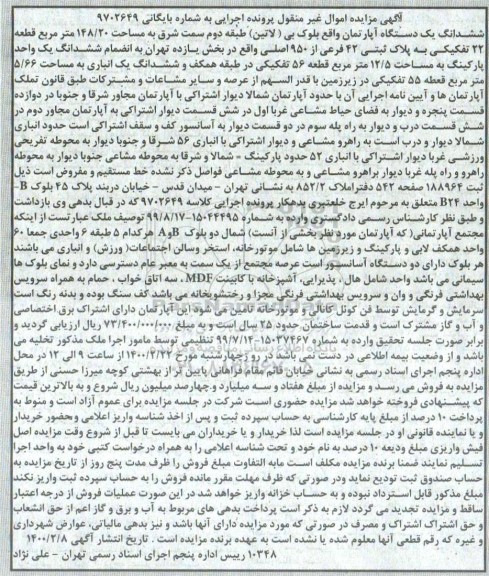 آگهی مزایده اموال غیر منقول پرونده اجرایی به شماره بایگانی ۹۷۰۲۶۴۹
ششدانگ یک دستگاه آپارتمان واقع بلوک بی ( لاتین) طبقه دوم سمت شرق به مساحت ۱۴۸/۲۰ متر مربع قطعه
۲۲ تفکیکی به پلاک ثبتی ۴۲ فرعی از ۹۵۰ اصلی واقع در بخش یازده تهران به انضمام ششدانگ یک واحد
پارکینگ به مساحت ۱۲/۵ متر مربع قطعه ۵۶ تفکیکی در طبقه همکف و ششدانگ یک انباری به مساحت ۵/۶۶
متر مربع قطعه ۵۵ تفکیکی در زیرزمین با قدر السهم از عرصه و سایر مشاعات و مشترکات طبق قانون تملک
آپارتمان ها و آیین نامه اجرایی آن با حدود آپارتمان شمالا دیوار اشتراکی با آپارتمان مجاور شرقا و جنوبا در دوازده
قسمت پنجره و دیوار به فضای حیاط مشاعی غربا اول در شش قسمت دیوار اشتراکی به آپارتمان مجاور دوم در
شش قسمت درب و دیوار به راه پله سوم در دو قسمت دیوار به آسانسور کف و سقف اشتراکی است حدود انباری
شمالا دیوار و درب است به راهرو مشاعی و دیوار اشتراکی با انباری ۵۶ شرقا و جنوبا دیوار به محوطه تفریحی
ورزشی غربا دیوار اشتراکی با انباری ۵۲ حدود پارکینگ = شمالا و شرقا به محوطه مشاعی جنوبا دیوار به محوطه
راهرو و راه پله غربا دیوار براهرو مشاعی و به محوطه مشاعی فواصل ذکر نشده خط مستقیم و مفروض است ذیل
ثبت ۱۸۸۹۶۴ صفحه ۵۴۲ دفتراملاک ۸۵۲/۲ به نشانی تهران – میدان قدس - خیابان دربند پلاک ۴۵ بلوک B-
واحد B۲۴ متعلق به مرحوم ایرج خلعتبری بدهکار پرونده اجرایی کلاسه ۹۷۰۲۶۴۹ که در قبال بدهی وی بازداشت
و طبق نظر کارشناس رسمی دادگستری وارده به شماره ۱۵۰۴۴۴۹۵-۹۹/۸/۱۷ توصیف ملک عبارتست از اینکه
مجتمع آپارتمانی( که آپارتمان مورد نظر بخشی از آنست) شمال دو بلوک Aو B هرکدام ۵ طبقه ۶ واحدی جمعا ۶۰
واحد همکف لابی و پارکینگ و زیرزمین ها شامل موتورخانه، استخر وسالن اجتماعات( ورزش) و انباری می باشند
هر بلوک دارای دو دستگاه آسانسور است عرصه مجتمع از یک سمت به معبر عام دسترسی دارد و نمای بلوک ها
سیمانی می باشد واحد شامل هال ، پذیرایی، آشپزخانه با کابینت MDF، سه اتاق خواب ، حمام به همراه سرویس
بهداشتی فرنگی و وان و سرویس بهداشتی فرنگی مجزا و رختشویخانه می باشد کف سنگ بوده و بدنه رنگ است
سرمایش و گرمایش توسط فن کوئل کانالی و موتورخانه تامین می شود این آپارتمان دارای اشتراک برق اختصاصی
و آب و گاز مشترک است و قدمت ساختمان حدود ۲۵ سال است و به مبلغ ۷۳/۴۰۰/۰۰۰/۰۰۰ ریال ارزیابی گردید و
برابر صورت جلسه تحقیق وارده به شماره ۱۵۰۳۷۴۶۷-۹۹/۷/۱۴ تنظیمی توسط مامور اجرا ملک مذکور تخلیه می
باشد و از وضعیت بیمه اطلاعی در دست نمی باشد در روز چهارشنبه مورخ ۱۴۰۰/۲/۲۲ از ساعت ۹ الی ۱۲ در محل
اداره پنجم اجرای اسناد رسمی به نشانی خیابان قائم مقام فراهانی پایین تر از بهشتی کوچه میرزا حسنی از طریق
مزایده به فروش می رسد و مزایده از مبلغ هفتاد و سه میلیارد و چهارصد میلیون ریال شروع و به بالاترین قیمت
که پیشنهادی فروخته خواهد شد مزایده حضوری است شرکت در جلسه مزایده برای عموم آزاد است و منوط به
پرداخت ۱۰ درصد از مبلغ پایه کارشناسی به حساب سپرده ثبت و پس از اخذ شناسه واریز اعلامی وحضور خریدار
و یا نماینده قانونی او در جلسه مزایده است لذا خریدار و یا خریداران می بایست تا قبل از شروع وقت مزایده اصل
فیش واریزی مبلغ ودیعه ۱۰ درصد به نام خود و تحت شناسه اعلامی را به همراه درخواست کتبی خود به واحد اجرا
تسلیم نمایند ضمنا برنده مزایده مکلف است مابه التفاوت مبلغ فروش را ظرف مدت پنج روز از تاریخ مزایده به
حساب صندوق ثبت تودیع نماید ودر صورتی که ظرف مهلت مقرر مانده فروش را به حساب سپرده ثبت واریز نکند
مبلغ مذکور قابل استرداد نبوده و به حساب خزانه واریز خواهد شد در این صورت عملیات فروش از درجه اعتبار
ساقط و مزایده تجدید می گردد لازم به ذکر است پرداخت بدهی های مربوط به آب و برق و گاز اعم از حق انشعاب
و حق اشتراک اشتراک و مصرف در صورتی که مورد مزایده دارای آنها باشد و نیز بدهی مالیاتی، عوارض شهرداری
و غیره که رقم قطعی آنها معلوم شده یا نشده است به عهده برنده مزایده است . تاریخ انتشار آگهی ۱۴۰۰/۲/۸
۱۰۳۴۸ رییس اداره پنجم اجرای اسناد رسمی تهران – علی نژاد